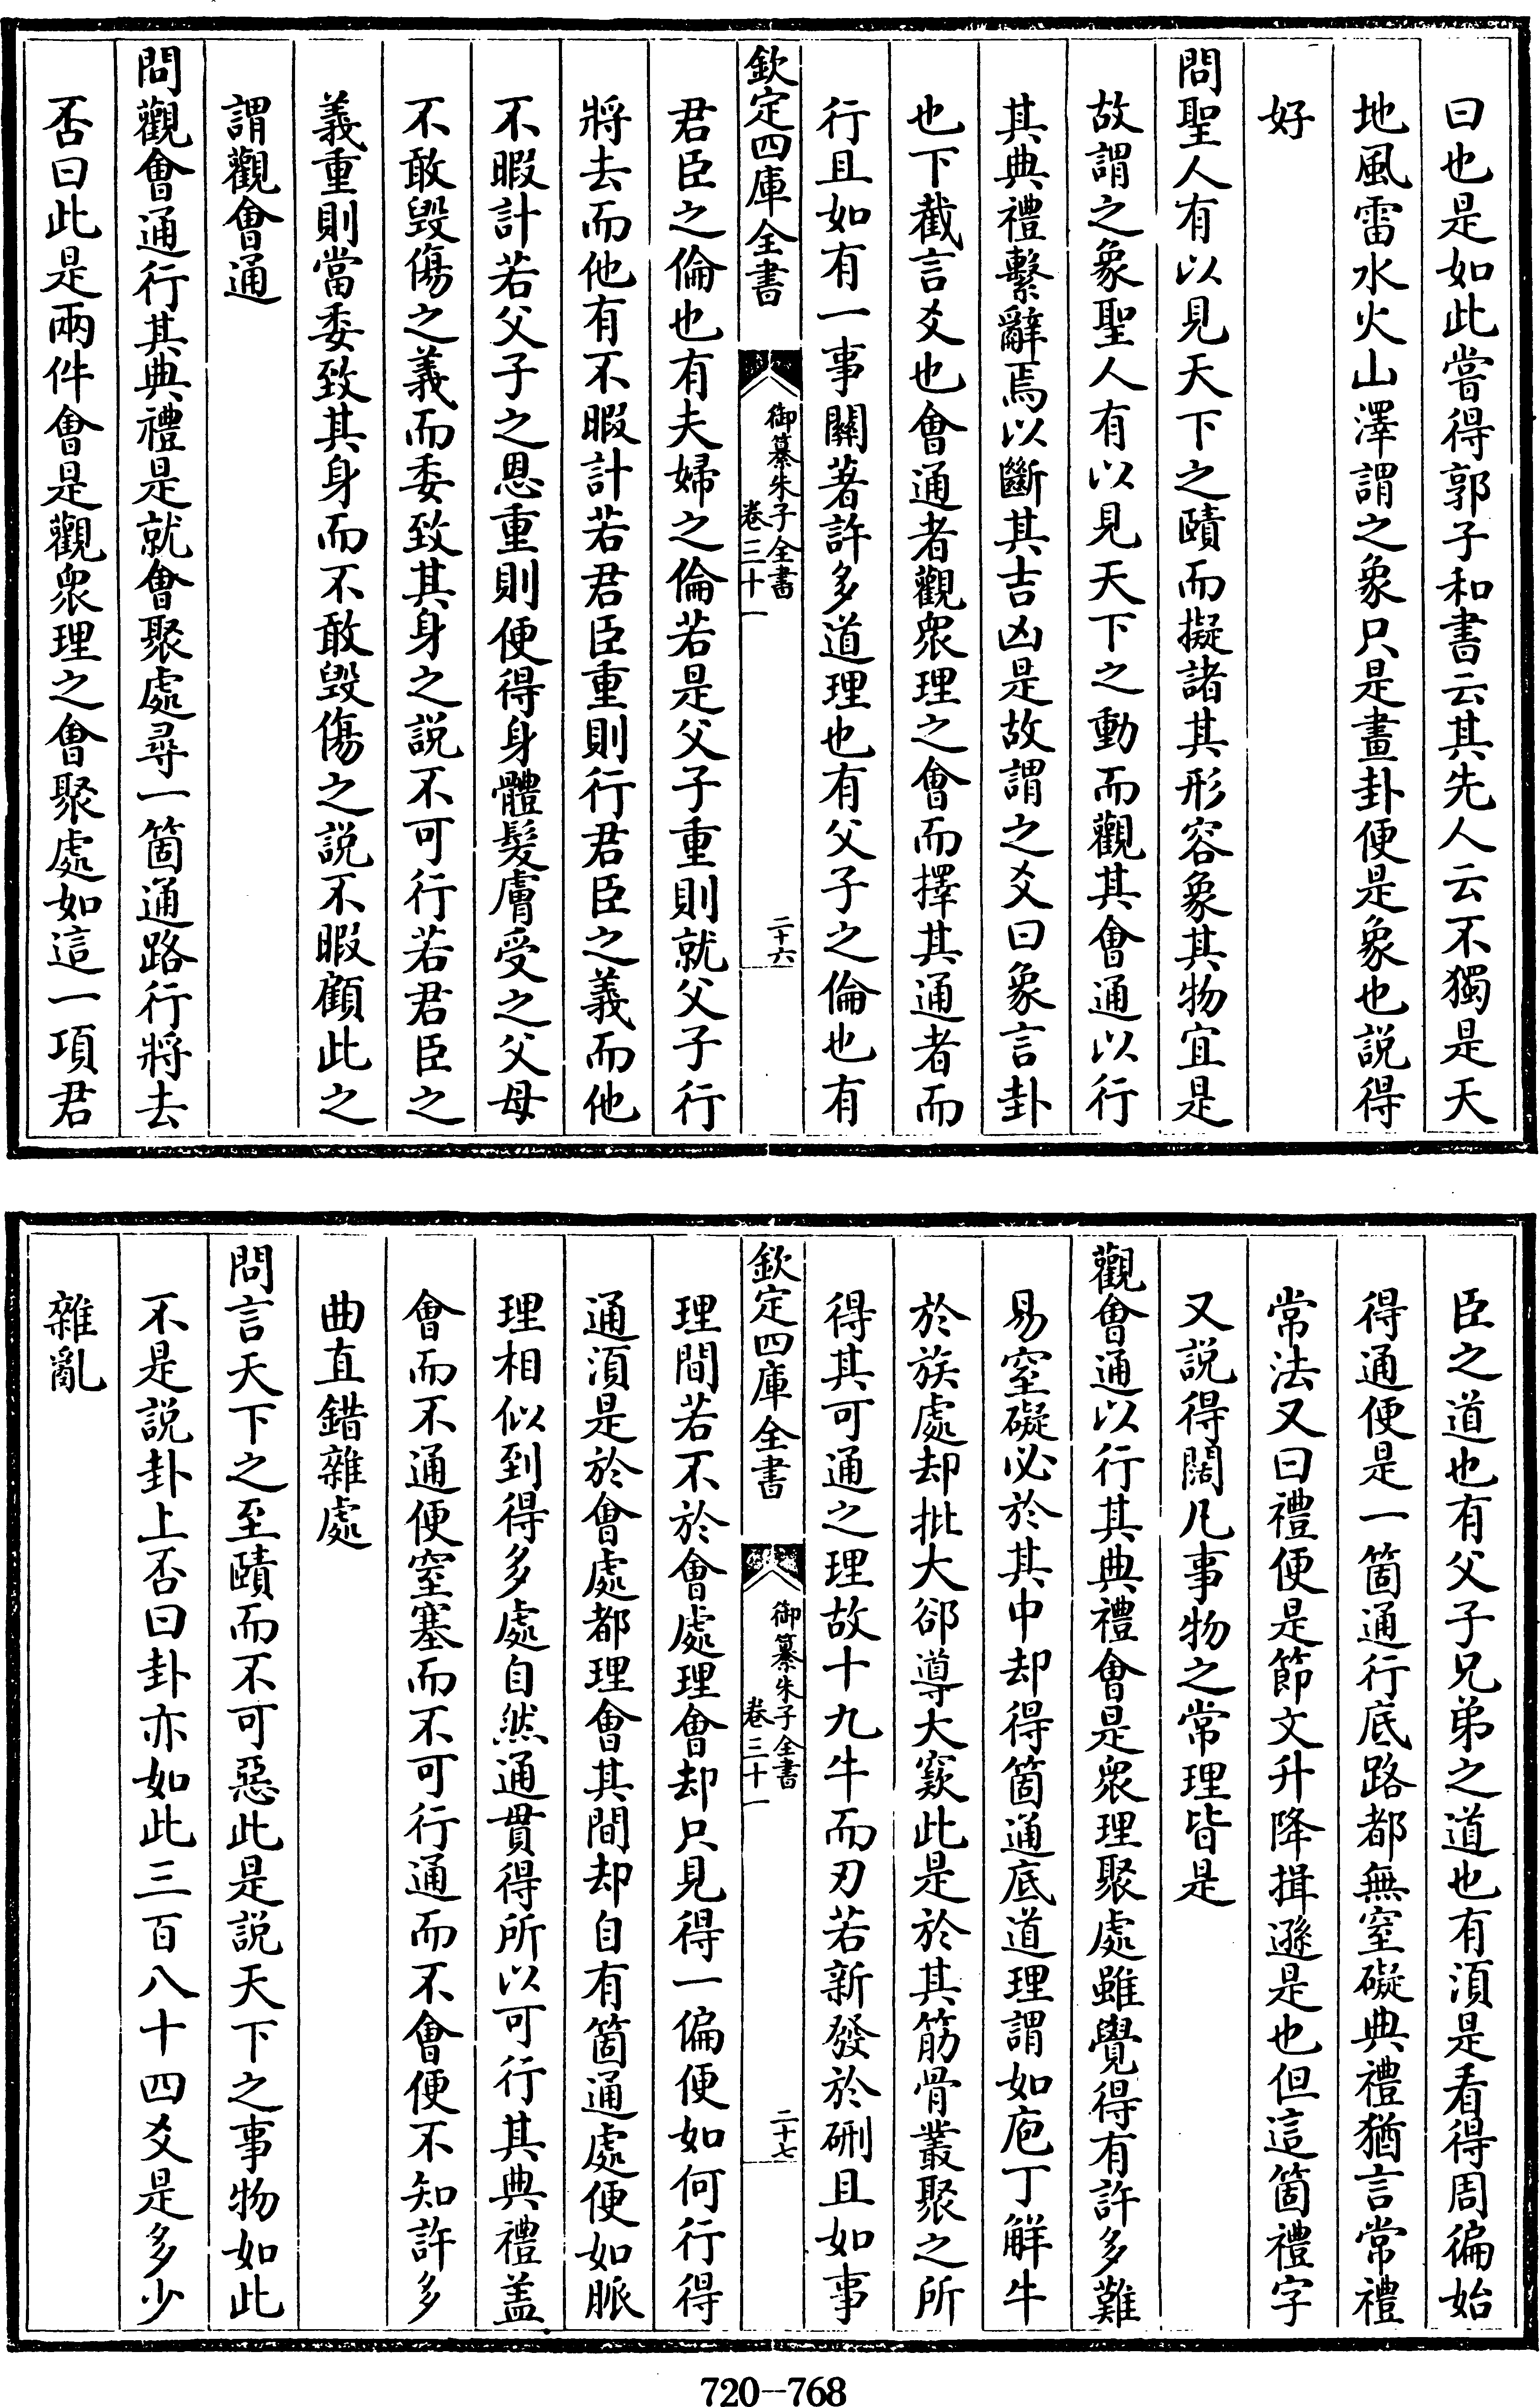 曰也是如此嘗得郭子和書云其先人云不獨是天
地風雷水火山澤謂之象只是畫卦便是象也説得
好
問聖人有以見天下之賾而擬諸其形容象其物宜是
故謂之象聖人有以見天下之動而觀其會通以行
其典禮繫辭焉以斷其吉凶是故謂之爻曰象言卦
也下截言爻也會通者觀衆理之會而擇其通者而
行且如有一事關著許多道理也有父子之倫也有
欽定四庫全書
御纂朱子全書
卷三十一
二十六
君臣之倫也有夫婦之倫若是父子重則就父子行
將去而他有不暇計若君臣重則行君臣之義而他
不暇計若父子之恩重則便得身體髮膚受之父母
不敢毀傷之義而委致其身之説不可行若君臣之
義重則當委致其身而不敢毀傷之説不暇顧此之
謂觀會通
問觀會通行其典禮是就會聚處尋一箇通路行將去
否曰此是兩件會是觀衆理之會聚處如這一項君
臣之道也有父子兄弟之道也有須是看得周徧始
得通便是一箇通行底路都無窒礙典禮猶言常禮
常法又曰禮便是節文升降揖遜是也但這箇禮字
又説得闊凡事物之常理皆是
觀會通以行其典禮會是衆理聚處雖覺得有許多難
易窒礙必於其中却得箇通底道理謂如庖丁解牛
於族處却批大郤導大窾此是於其筋骨叢聚之所
得其可通之理故十九牛而刃若新發於硎且如事
欽定四庫全書
御纂朱子全書
卷三十一
二十七
理間若不於會處理會却只見得一偏便如何行得
通須是於會處都理會其間却自有箇通處便如脈
理相似到得多處自然通貫得所以可行其典禮蓋
會而不通便窒塞而不可行通而不會便不知許多
曲直錯雜處
問言天下之至賾而不可惡此是説天下之事物如此
不是説卦上否曰卦亦如此三百八十四爻是多少
雜亂
720-768